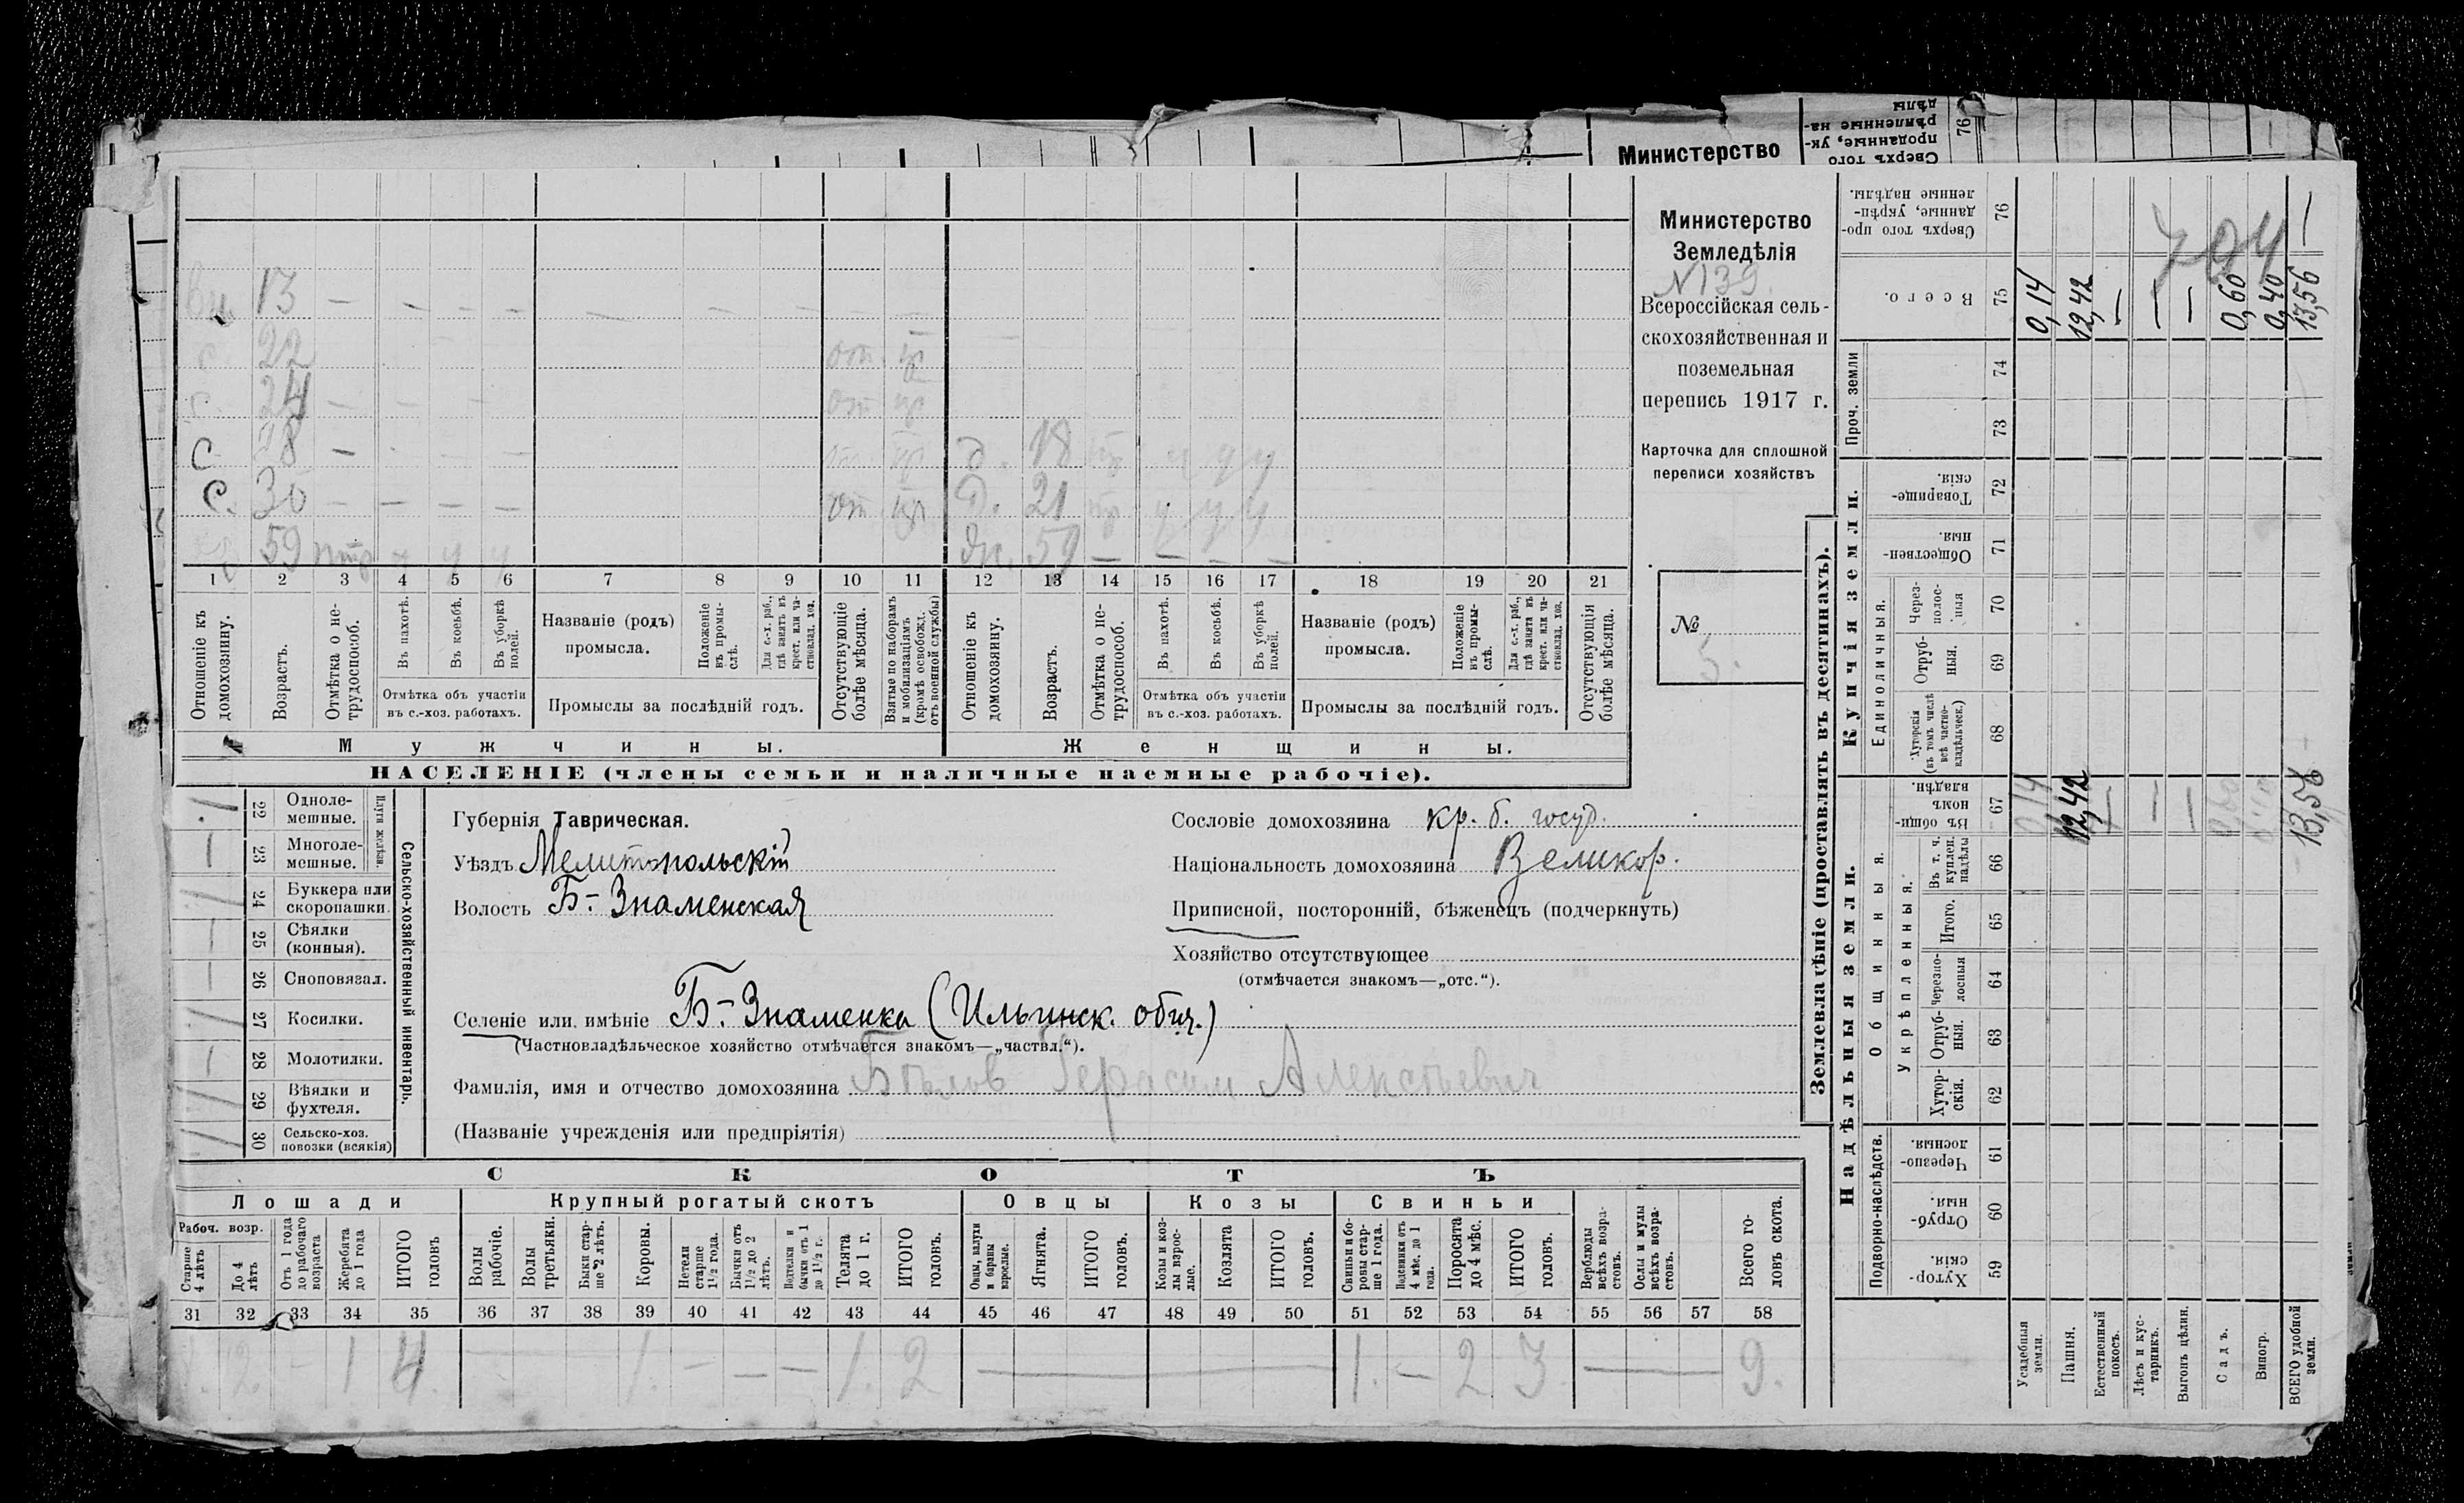 Министерство
Сверхъ того
проданные, ук-
рѣпленные на-
дѣлы
76
Министерство
Земледѣлія
N 139.
Всероссійская сель-
скохозяйственная и
поземельная
перепись 1917 г.
Карточка для сплошной
переписи хозяйствъ
№
5.
13 — — — — — — —
22 от. пр
24 — — — от пр
С 28 — — — — от. пр д. 18 пр ч ч ч
С. 30 — — — — от пр д. 21 пр ч ч ч
59 ч ч ч Ж. 59 — — — —
1 2 3 4 5 6 7 8 9 10 11 12 13 14 15 16 17 18 19 20 21
Отношеніе къ домохозяину.
Возрастъ.
Отмѣтка о не-трудоспособ.
Въ пахотѣ.
Въ косьбѣ.
Въ уборкѣ полей.
Отмѣтка объ участіи
въ с.-хоз. работахъ.
Названіе (родъ)
промысла.
Положеніе въ промы-слѣ.
Для с.-х. раб., гдѣ занятъ въ крест. или ча-стновлад. хоз.
Промыслы за послѣдній годъ.
Отсутствующіе болѣе мѣсяца.
Взятые по наборамъ и мобилизаціямъ (кромѣ освобожд. отъ военной службы)
Отношеніе къ домохозяину.
Возрастъ.
Отмѣтка о не-трудоспособ.
Въ пахотѣ.
Въ косьбѣ.
Въ уборкѣ полей.
Отмѣтка объ участіи
въ с.-хоз. работахъ.
Названіе (родъ)
промысла.
Положеніе въ промы-слѣ.
Для с.-х. раб., гдѣ занята въ крест. или ча-стновлад. хоз.
Промыслы за послѣдній годъ.
Отсутствующія болѣе мѣсяца.
Мужчины. Женщины.
НАСЕЛЕНІЕ (члены семьи и наличные наемные рабочіе).
Сельско-хозяйственный инвентарь.
Плуги желѣзн.
1 22 Одноле-мешные.
1 23 Многоле-мешные.
24 Буккера или скоропашки.
25 Сѣялки (конныя).
26 Сноповязал.
27 Косилки.
28 Молотилки.
29 Вѣялки и фухтеля.
30 Сельско-хоз. повозки (всякія)
Губернія Таврическая.
Уѣздъ Мелитопольскій
Волость Б-Знаменская
Сословіе домохозяина кр. б. госуд.
Національность домохозяина Великор.
Приписной, посторонній, бѣженецъ (подчеркнуть)
Хозяйство отсутствующее
(отмѣчается знакомъ—„отс.“).
Селеніе или имѣніе Б-Знаменка (Ильинск. общ.)
(Частновладѣльческое хозяйство отмѣчается знакомъ—„частвл.“).
Фамилія, имя и отчество домохозяина Бѣлов Герасим Алексѣевич
(Названіе учрежденія или предпріятія)
СКОТЪ
Лошади Крупный рогатый скотъ Овцы Козы Свиньи
Рабоч. возр.
Старше 4 лѣтъ
До 4 лѣтъ
Отъ 1 года до рабочаго возраста
Жеребята до 1 года
ИТОГО головъ
Волы рабочіе.
Волы третьяки.
Быки стар-ше 2 лѣтъ.
Коровы.
Нетели старше 1½ года.
Бычки отъ 1½ до 2 лѣтъ.
Подтелки и бычки отъ 1 до 1½ г.
Телята до 1 г.
ИТОГО головъ.
Овцы, валухи и бараны взрослые.
Ягнята.
ИТОГО головъ.
Козы и коз-лы взрос-лые.
Козлята
ИТОГО головъ.
Свиньи и бо-ровы стар-ше 1 года.
Подсвинки отъ 4 мѣс. до 1 года.
Поросята до 4 мѣс.
ИТОГО головъ.
Верблюды всѣхъ возра-стовъ.
Ослы и мулы всѣхъ возра-стовъ.
Всего го-ловъ скота.
31 32 33 34 35 36 37 38 39 40 41 42 43 44 45 46 47 48 49 50 51 52 53 54 55 56 57 58
2. 1 4. 1. — — — 1. 2 — 1. — 2 3. — 9.
Землевладѣніе (проставлять въ десятинахъ).
Надѣльныя земли. Купчія земли. Проч. земли
Подворно-наслѣдств. Общинныя. Укрѣпленныя. Единоличныя.
Хутор-скія. 59
Отруб-ныя. 60
Черезпо-лосныя. 61
Хутор-скія. 62
Отруб-ныя. 63
Черезпо-лосныя 64
Итого. 65
Въ т. ч. куплен. надѣлы 66
Въ общи-номъ владѣн. 67
Хуторскія (въ томъ числѣ всѣ частно-владѣльческ.) 68
Отруб-ныя. 69
Через-полос-ныя 70
Обществен-ныя. 71
Товарище-скія. 72
73
74
Всего. 75
Сверхъ того про-данные, укрѣп-ленные надѣлы. 76
Усадебныя земли. 0,14 0,14
Пашня. 12,42 12,42
Естественный покосъ. — —
Лѣсъ и кус-тарникъ. — —
Выгонъ цѣлин. — —
Садъ. 0,60
Виногр. 0,40
ВСЕГО удобной земли. 13,56 13,56 —
794